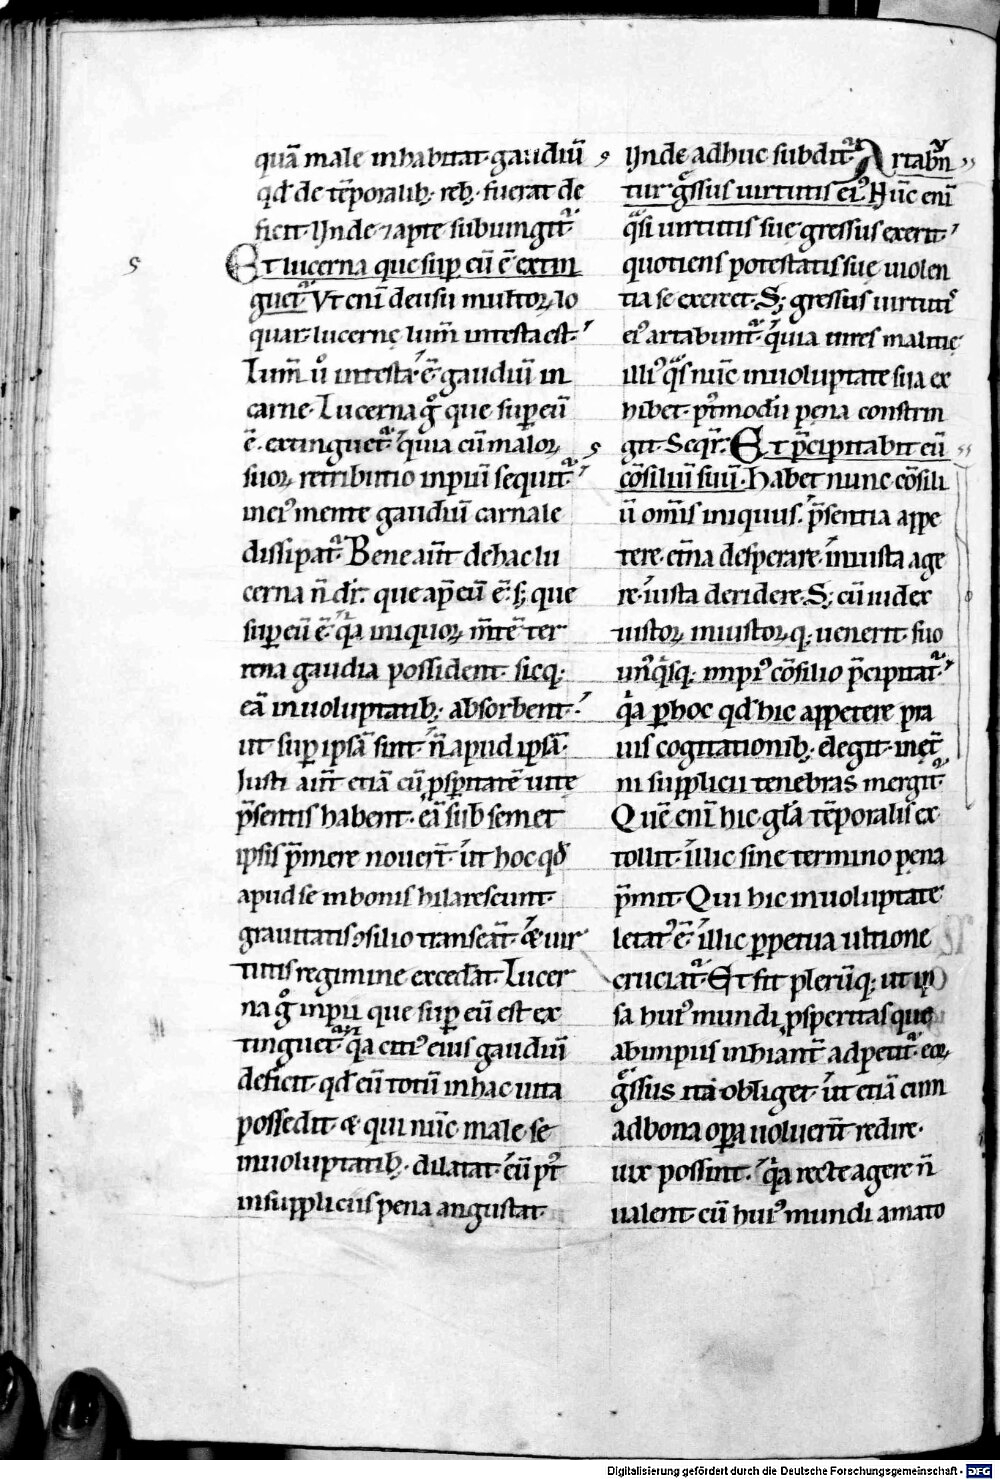 quā male inhabitat· gaudiū
qđ de tēporalib; reb; fuerat de
ficit· Unde ⁊ apte subiungit᷑
Et lucerna que suꝑ eū ē extin
guet᷑· Vt enī deusu multoꝝ lo
quar· lucernę lum̄ intesta est·
lum̄ uͦ intesta· ē gaudiū in
carne· Lucerna gͦ que suꝑ eū
ē· extinguet᷑· quia cū maloꝝ
suoꝝ retributio inpiū sequit᷑·
in eiꝰ mente gaudiū carnale
dissipat᷑· Bene aūt de hac lu
cerna n̄ dr̄· que ap̄ eū ē· s; que
suꝑ eū ē· qͥa iniquoꝝ m̄tē ter
rena gaudia possident· sicq;
eā in uoluptatib; absorbent·
ut suꝑ ipsā sint· n̄ apud ipsā·
Iusti aūt etiā cū ꝓsꝑitatē uitę
p̄sentis habent· eā sub semet
ipsis p̄mere nouer̄t· ut hoc qđ
apud se in bonis hilarescunt·
grauitatis ↄsilio transeāt· & uir
tutis regimine excedāt· Lucer
na gͦ inpii que suꝑ eū est ex
tinguet᷑· qͥa citiꝰ eius gaudiū
deficit· qđ eū totū in hac uita
possedit· & qui nūc male se
in uoluptatib; dilatat· eū pꝰt
in suppliciis pena angustat·
Unde adhuc subdit᷑· Artabn̄
tur gͣssus uirtutis eiꝰ· Nūc enī
qͣsi uirtutis sue gressus exerit·
quotiens potestatis suę uiolen
tia se exercet· S; gressus uirtutis
eiꝰ artabunt᷑· quia uires malitię
illiꝰ qͣs nūc in uoluptate sua ex
hibet· pꝰtmodū pęna constrin
git· Seqr̄· Et p̄cipitabit eū
cōsiliū suū· Habet nunc cōsili
ū omīs iniquus· p̄sentia appe
tere· et̄na desperare· iniusta age
re· iusta deridere· S; cū iudex
iustoꝝ iniustoꝝq; uenerit· suo
unꝰqͥsq; impiꝰ cōsilio p̄cipitat᷑·
qͥa ꝑ hoc qđ hic appetere pra
uis cogitationib; elegit· in ęt̄
ni supplicii tenebras mergit᷑·
Quē enī hic gła tēporalis ex
tollit· illic sine termino pęna
p̄mit· Qui hic in uoluptate
letatꝰ ē· illic ꝑpetua ultione
cruciat᷑· Et fit plerūq; ut ip
sa huiꝰ mundi ꝓsperitas que
ab inpiis inhiant̄ adpetit᷑· eoꝝ
gͣssus ita obliget· ut etiā cum
ad bona oꝑa uoluerīt redire·
uix possint· qͥa recte agere n̄
ualent· cū huiꝰ mundi amato
Digitalisierung gefördert durch die Deutsche Forschungsgemeinschaft - DFG